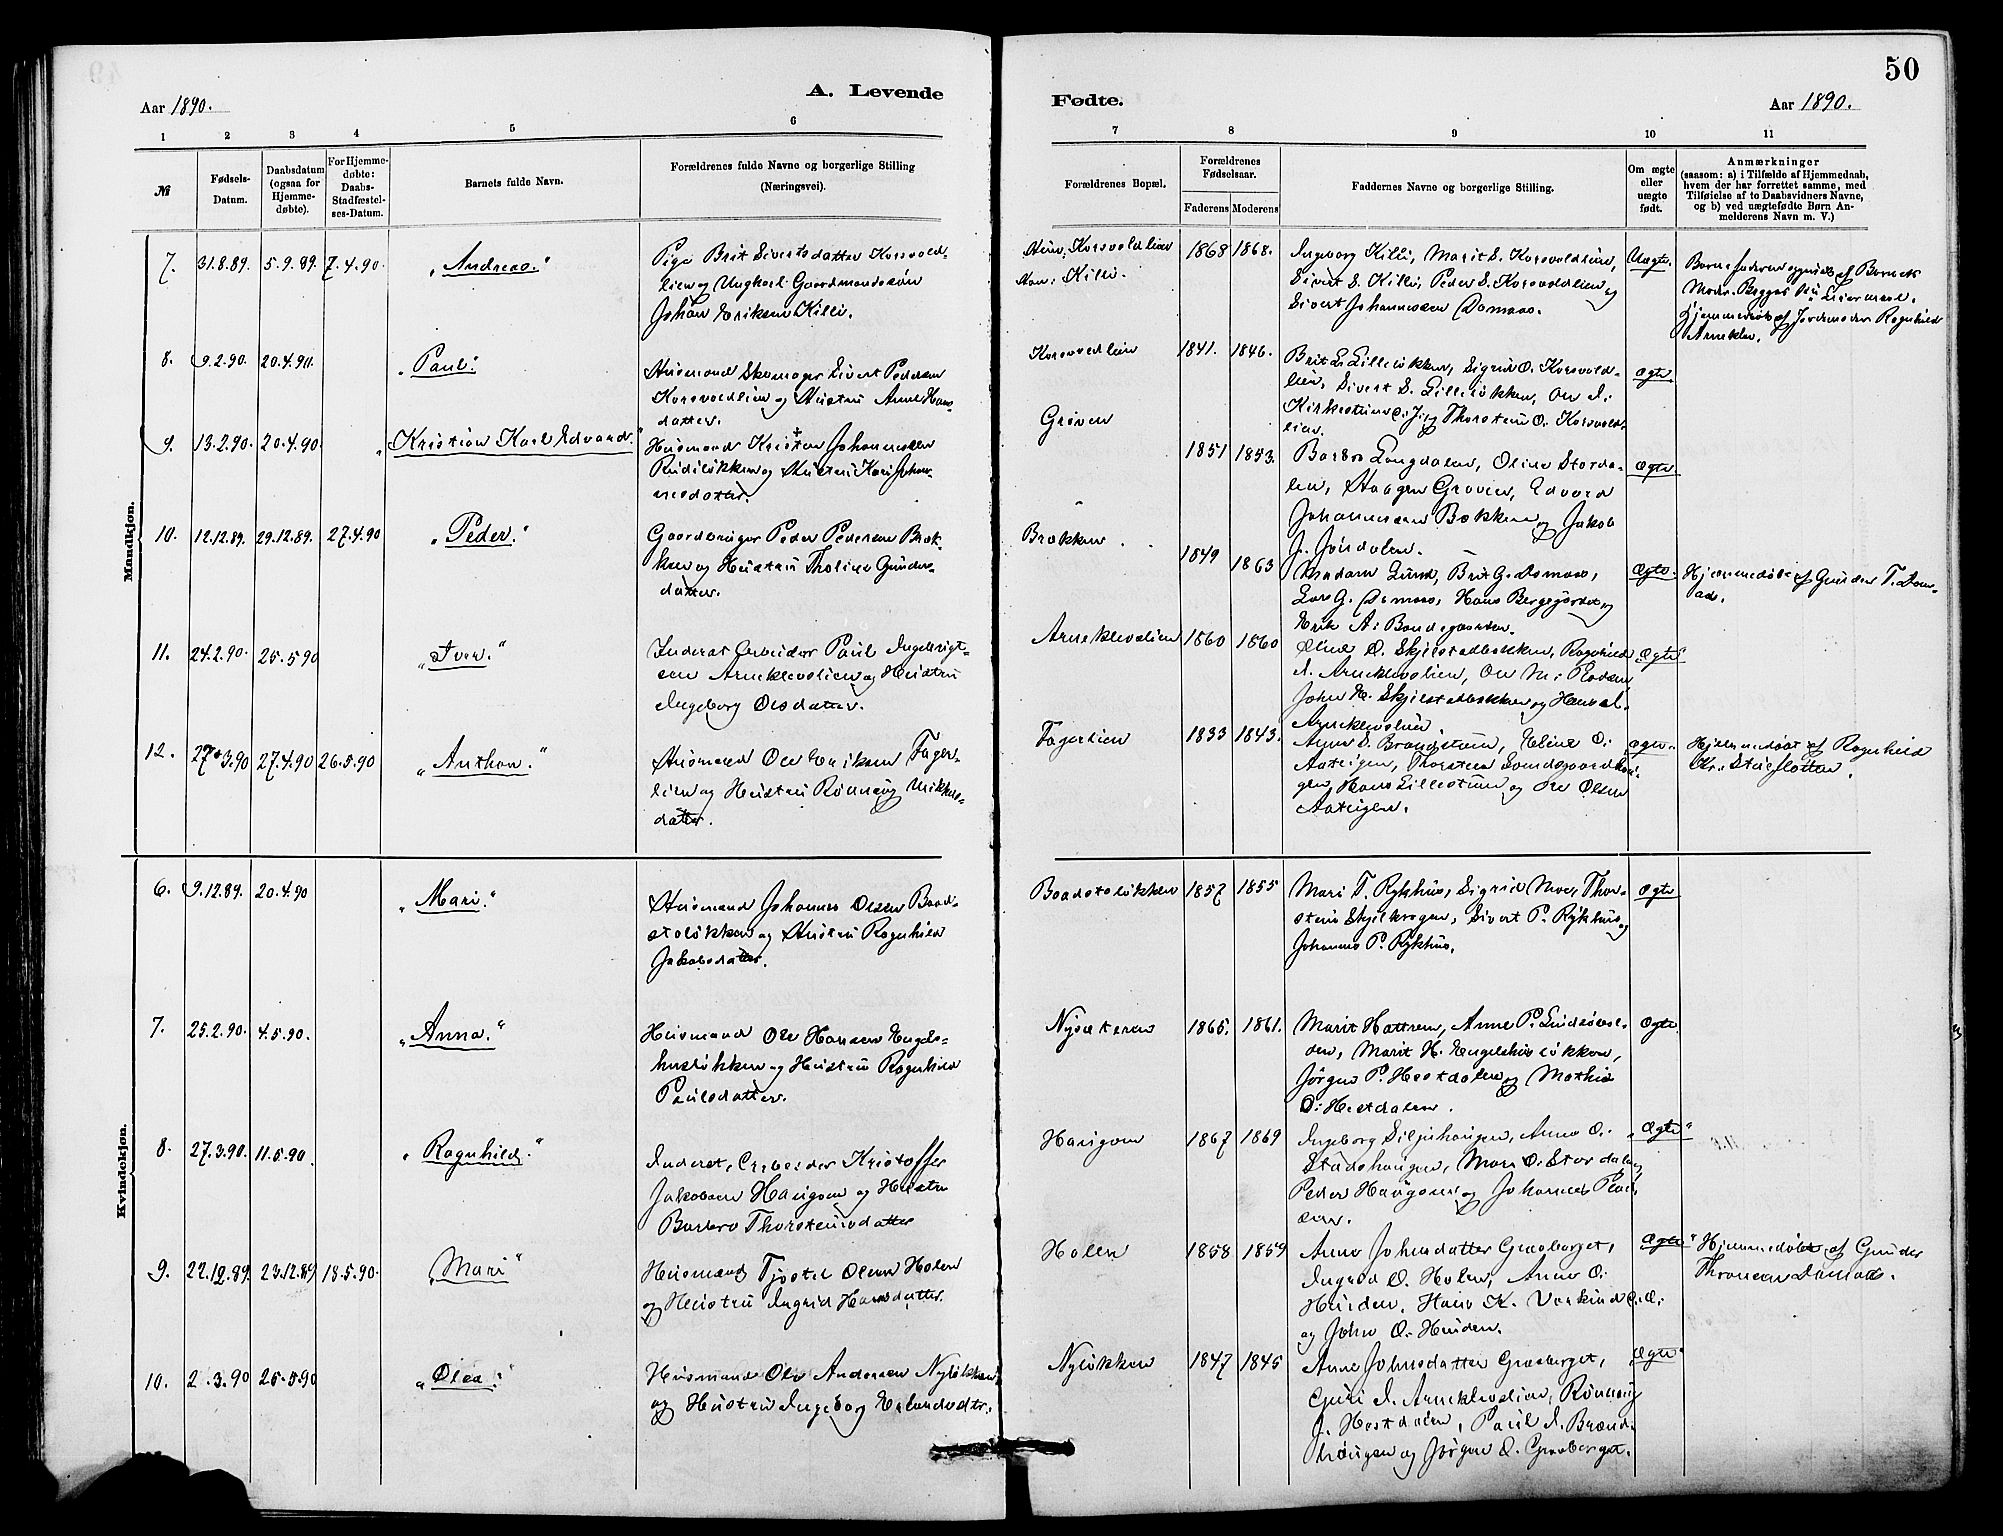 50
Aar 1890.
A. Levende
Fødte.
Aar 1890.
1 2 3 4 5 6 7 8 9 10 11
№
Fødsels-
Datum.
Daabsdatum
(ogsaa for
Hjemme-
døbte).
For Hjemme-
døbte:
Daabs-
Stadfæstel-
ses-Datum.
Barnets fulde Navn.
Forældrenes fulde Navne og borgerlige Stilling
(Næringsvei).
Forældrenes Bopæl.
Forældrenes
Fødselsaar.
Faderens Moderens
Faddernes Navne og borgerlige Stilling.
Om ægte
eller
uægte
født.
Anmærkninger
(saasom: a) i Tilfælde af Hjemmedaab,
hvem der har forrettet samme, med
Tilføielse af to Daabsvidners Navne,
og b) ved uægtefødte Børn An-
melderens Navn m. V.)
Mandkjøn.
7. 31.8.89. 5.9.89. 7.4.90. "Andreas."
Pige Brit Sivertsdatter Korsvold-
lien og Ungkarl Gaardmandssøn
Johan Eriksen Killi.
Korsvoldlien
Killi.
1868 1868.
Ingeborg Killi, Marit S. Korsvoldlien,
Sivert S. Killi, Peder S. Korsvoldlien og
Sivert Johannessen Domaas.
Uægte.
Barnefaderen opgivet af Barnets
Moder. Begges
Hjemmedøbt af Jordemoder Ragnhild
Arneklev.
8. 9.2.90. 20.4.90. "Paul."
Husmand Skomager Sivert Pedersen
Korsvoldlien og Hustru Anne Hans-
datter.
Korsvoldlien
1841. 1846.
Brit L. Lilleløkken, Sigrid O. Korsvold-
lien, Sivert S. Lilleløkken, Ole I.
Kirkestuen og Thorstein O. Korsvold-
lien.
ægte
9. 13.2.90. 20.4.90 "Kristian Karl Edvard."
Husmand Kristen Johannessen
Rudiløkken og Hustru Kari Johan-
nesdatter.
Groven
1851 1853.
Barbro Langdalen, Oline Storda-
len, Haagen Groven, Edvard
Johannessen Bækken og Jakob
J. Jøndalen.
ægte
10. 12.12.89. 29.12.89. 27.4.90 "Peder."
Gaardbruger Peder Pedersen Brok-
ken og Hustru Tholine Gunders-
datter.
Brokken.
1849 1863
Madam Lund, Brit G. Domaas,
Lars G. Domaas, Hans Bergejordet og
Erik A. Bondegaarden.
ægte.
Hjemmedøbt af Gunder T. Dom-
aas.
11. 24.2.90. 25.5.90 "Iver."
Inderst Arbeider Paul Ingebrigt-
sen Arneklevslien og Hustru
Ingeborg Olsdatter.
Arneklevslien
1860 1860
Oline O. Skjelstadbakken, Ragnhild
I. Arneklevslien, Ole M. Plassen,
John E. Skjelstadbakken og Hans I.
Arneklevslien.
"ægte"
12. 27.3.90 27.4.90 26.5.90 "Anthon."
Husmand Ole Eriksen Fager-
lien og Hustru Rønnaug Mikkels-
datter.
Fagerlien
1833 1843.
Anne S. Brandstuen, Eline O.
Aateigen, Thorstein Lundsgaardhau-
gen, Hans Lillestuen og Ole Olsen
Aateigen.
ægte.
Hjemmedøbt af Ragnhild
Kr. Stueflotten.
Kvindekjøn.
6. 9.12.89. 20.4.90 "Mari."
Husmand Johannes Olsen Baad-
stoløkken og Hustru Ragnhild
Jakobsdatter.
Baadstoløkken
1857 1855
Mari T. Rykhus, Sigrid Moe, Thor-
stein Skjelkrogen, Sivert P. Rykhus og
Johannes P. Rykhus.
ægte
7. 25.2.90. 4.5.90. "Anna."
Husmand Ole Hansen Engels-
husløkken og Hustru Ragnhild
Paulsdatter.
Nysæteren
1865. 1861.
Marit Hattrem, Anne P. Lindsøvol-
den, Marit H. Engelshusløkken,
Jørgen P. Hestdalen og Mathis
O. Hestdalen.
ægte.
8. 27.3.90. 11.5.90. "Ragnhild."
Inderst, Arbeider Kristoffer
Jakobsen Haugom og Hustru
Barbro Thorsteinsdatter
Haugom
1867 1869
Ingeborg Siljuhaugen, Anne O.
Stadshaugen, Mari O. Stordalen,
Peder Haugom og Johannes Plas-
sen.
"ægte"
9. 22.12.89. 23.12.89 18.5.90. "Mari"
Husmand Tjøstel Olsen Holen
og Hustru Ingrid Hansdatter.
Holen
1858 1859
Anne Johnsdatter Graaberget,
Ingrid O. Holen, Anne O.
Heiden, Hans K. Verkind O.
og John O. Heiden.
ægte"
Hjemmedøbt af Gunder
Thronsen Domaas.
10. 2.3.90 25.5.90 "Olea."
Husmand Ole Andersen Nyløkken
og Hustru Ingeborg Erlandsdtr.
Nyløkken
1847 1845
Anne Johnsdatter Graaberget,
Guri I. Arneklevslien, Rønnaug
J. Hestdalen, Paul I. Brænd-
haugen og Jørgen O. Graaberget.
"ægte"